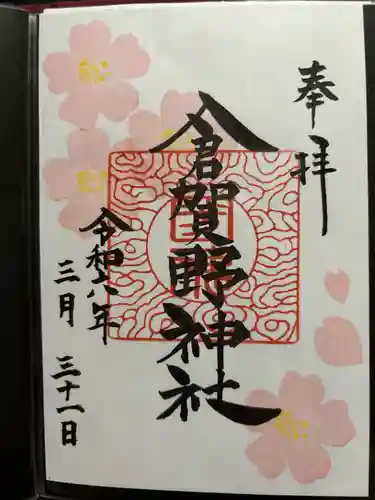 奉拝
倉賀野神社
令和六年
三月 三十一日